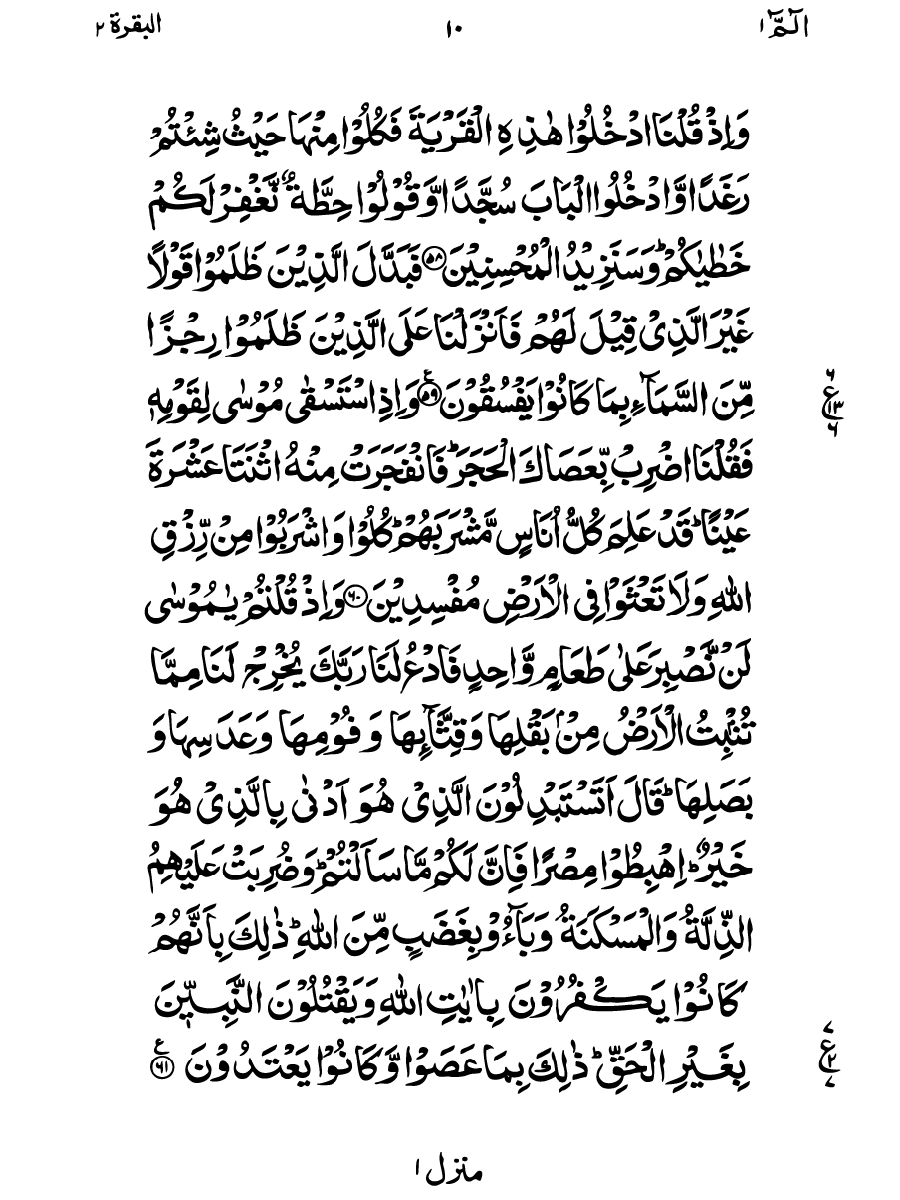 الٓمّٓ ١ ١٠ البقرة ٢
وَاِذْ قُلْنَا ادْخُلُوْا هٰذِهِ الْقَرْيَةَ فَكُلُوْا مِنْهَا حَيْثُ شِئْتُمْ
رَغَدًا وَّادْخُلُوا الْبَابَ سُجَّدًا وَّقُوْلُوْا حِطَّةٌ نَّغْفِرْ لَكُمْ
خَطٰيٰكُمْ ؕ وَسَنَزِيْدُ الْمُحْسِنِيْنَ ۝٥٨ فَبَدَّلَ الَّذِيْنَ ظَلَمُوْا قَوْلًا
غَيْرَ الَّذِىْ قِيْلَ لَهُمْ فَاَنْزَلْنَا عَلَى الَّذِيْنَ ظَلَمُوْا رِجْزًا
مِّنَ السَّمَآءِ بِمَا كَانُوْا يَفْسُقُوْنَ ۝٥٩ ع وَاِذِ اسْتَسْقٰى مُوْسٰى لِقَوْمِهٖ
٦ ع ١٣ ٦
فَقُلْنَا اضْرِبْ بِّعَصَاكَ الْحَجَرَ ؕ فَانْفَجَرَتْ مِنْهُ اثْنَتَا عَشْرَةَ
عَيْنًا ؕ قَدْ عَلِمَ كُلُّ اُنَاسٍ مَّشْرَبَهُمْ ؕ كُلُوْا وَاشْرَبُوْا مِنْ رِّزْقِ
اللّٰهِ وَلَا تَعْثَوْا فِى الْاَرْضِ مُفْسِدِيْنَ ۝٦٠ وَاِذْ قُلْتُمْ يٰمُوْسٰى
لَنْ نَّصْبِرَ عَلٰى طَعَامٍ وَّاحِدٍ فَادْعُ لَنَا رَبَّكَ يُخْرِجْ لَنَا مِمَّا
تُنْۢبِتُ الْاَرْضُ مِنْۢ بَقْلِهَا وَقِثَّآئِهَا وَفُوْمِهَا وَعَدَسِهَا وَ
بَصَلِهَا ؕ قَالَ اَتَسْتَبْدِلُوْنَ الَّذِىْ هُوَ اَدْنٰى بِالَّذِىْ هُوَ
خَيْرٌ ؕ اِهْبِطُوْا مِصْرًا فَاِنَّ لَكُمْ مَّا سَاَلْتُمْ ؕ وَضُرِبَتْ عَلَيْهِمُ
الذِّلَّةُ وَالْمَسْكَنَةُ وَبَآءُوْ بِغَضَبٍ مِّنَ اللّٰهِ ؕ ذٰلِكَ بِاَنَّهُمْ
كَانُوْا يَكْفُرُوْنَ بِاٰيٰتِ اللّٰهِ وَيَقْتُلُوْنَ النَّبِيّٖنَ
بِغَيْرِ الْحَقِّ ؕ ذٰلِكَ بِمَا عَصَوْا وَّكَانُوْا يَعْتَدُوْنَ ۝٦١ ع
٧ ع ٢ ٧
منزل ١